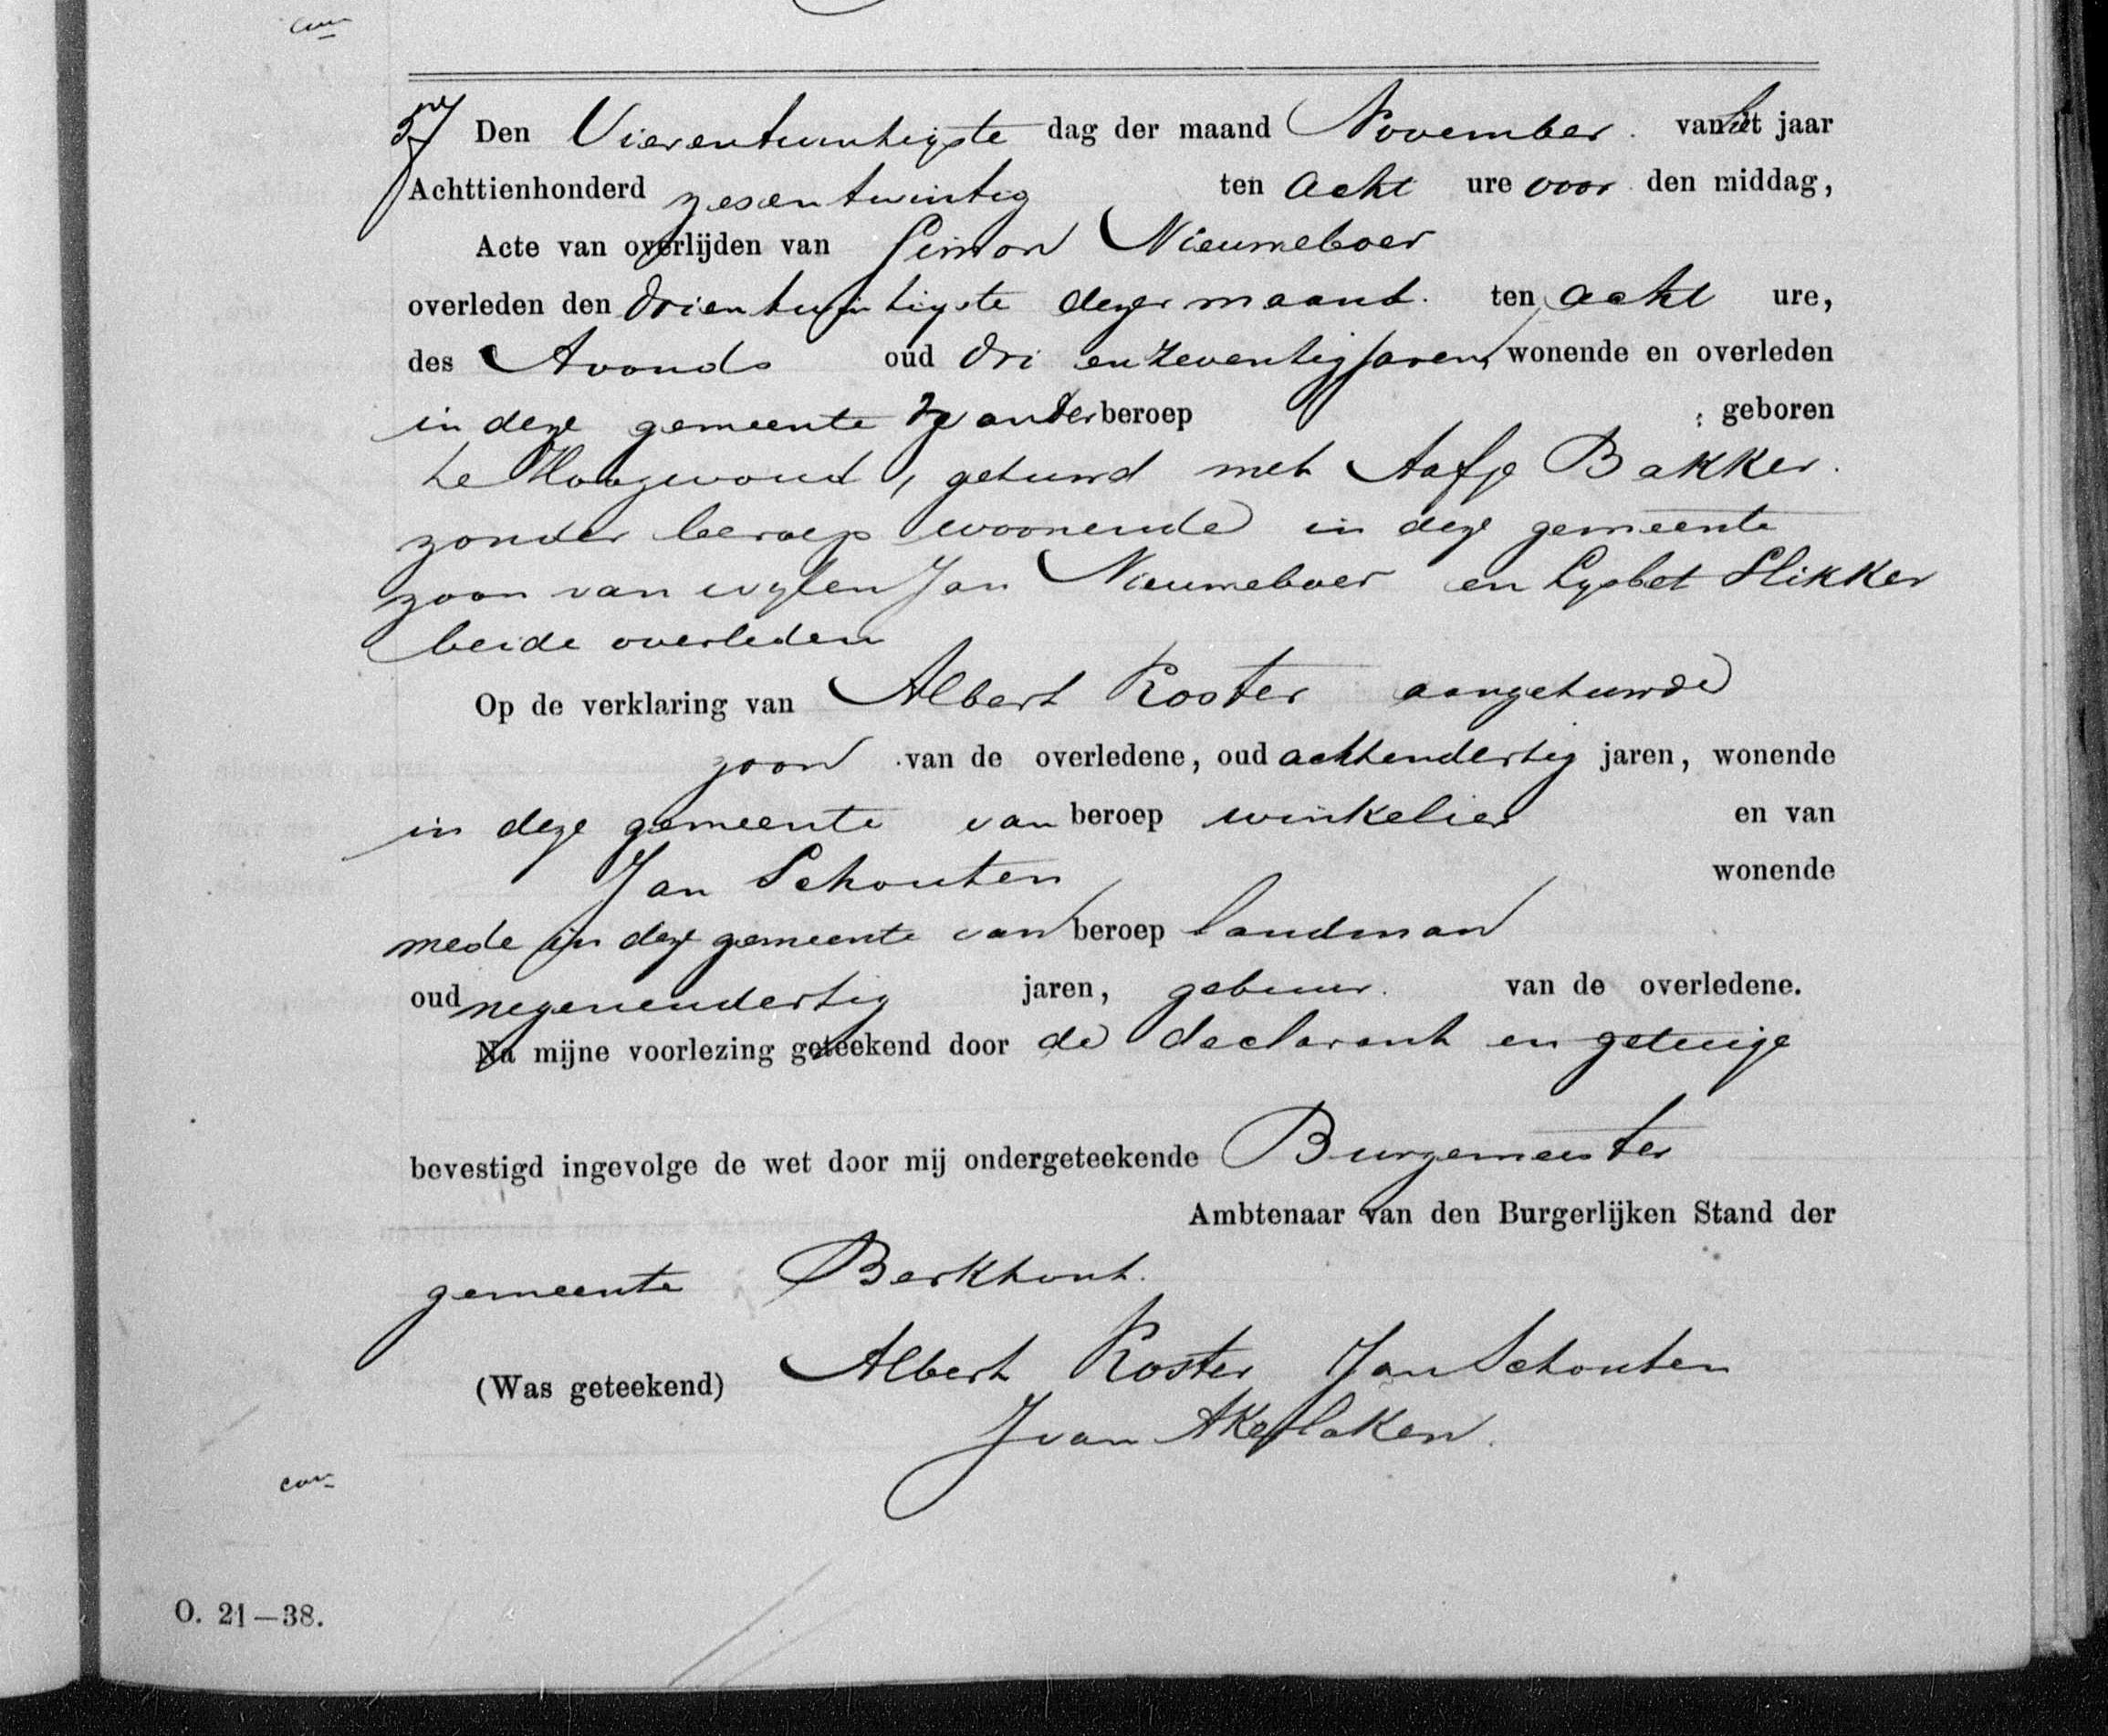 57 Den Vierentwintigste dag der maand November. van het jaar
Achttienhonderd zesentwintig ten acht ure voor den middag,
Acte van overlijden van Simon Nieuweboer
overleden den drientwintigste dezer maand. ten acht ure,
des Avonds oud dri en zeventig jaren, wonende en overleden
in deze gemeente zonder beroep ; geboren
te Hoogwoud, gehuwd met Aafje Bakker.
zonder beroep woonende in deze gemeente
zoon van wylen Jan Nieuweboer en Lysbet Slikker
beide overleden
Op de verklaring van Albert Koster aangehuwde
zoon van de overledene, oud achtendertig jaren, wonende
in deze gemeente van beroep winkelier en van
Jan Schouten wonende
mede in deze gemeente van beroep landman
oud negenendertig jaren, gebuur. van de overledene.
Na mijne voorlezing geteekend door de declarant en getuige
bevestigd ingevolge de wet door mij ondergeteekende Burgemeester
Ambtenaar van den Burgerlijken Stand der
gemeente Berkhout.
(Was geteekend) Albert Koster Jan Schouten
J van Akerlaken.
O. 21—38.